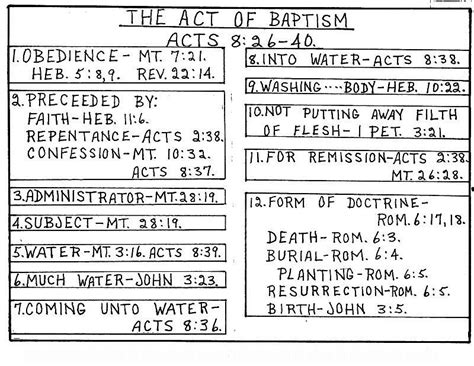 THE ACT OF BAPTISM
ACTS 8:26-40.
1.OBEDIENCE- MT. 7:21.
HEB. 5:8,9. REV. 22:14.
2.PRECEEDED BY:
FAITH-HEB. 11:6.
REPENTANCE-ACTS 2:38.
CONFESSION-MT. 10:32.
ACTS 8:37.
3.ADMINISTRATOR-MT.28:19.
4.SUBJECT-MT. 28:19.
5.WATER-MT. 3:16. ACTS 8:39.
6.MUCH WATER-JOHN 3:23.
7.COMING UNTO WATER-
ACTS 8:36.
8.INTO WATER-ACTS 8:38.
9.WASHING....BODY-HEB. 10:22.
10.NOT PUTTING AWAY FILTH
OF FLESH-1 PET. 3:21.
11.FOR REMISSION-ACTS 2:38.
MT. 26:28.
12.FORM OF DOCTRINE-
ROM. 6:17,18.
DEATH-ROM. 6:3.
BURIAL-ROM. 6:4.
PLANTING-ROM. 6:5.
RESURRECTION-ROM. 6:5.
BIRTH-JOHN 3:5.